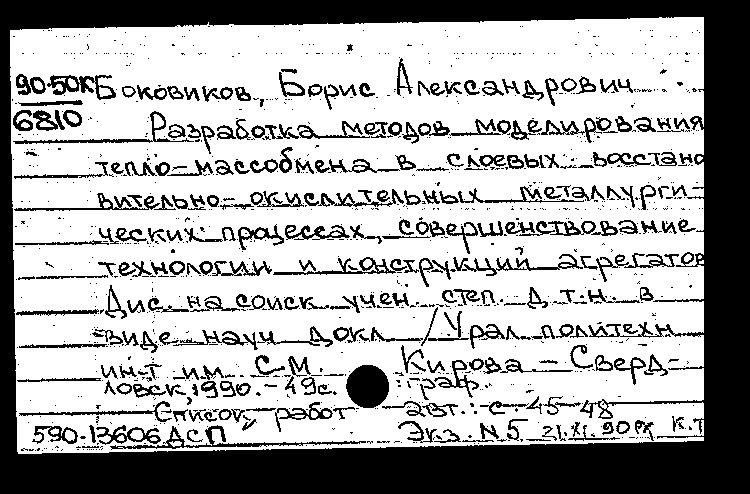 90-50к Боковиков, Борис Александрович
6810 Разработка методов моделирования
тепло-массообмена в слоевых восстано
вительно-окислительных металлурги-
ческих процессах, совершенствование
технологии и конструкций агрегатов
Дис. на соиск. учен. степ. д.т.н. в
виде науч докл / Урал политехн
ин-т им. С.М. Кирова. - Сверд-
ловск, 1990. - 49с. : граф.
Список работ авт.: с. 45-48
590-13606 ДСП Экз. N5 21.XI.90 К.Т